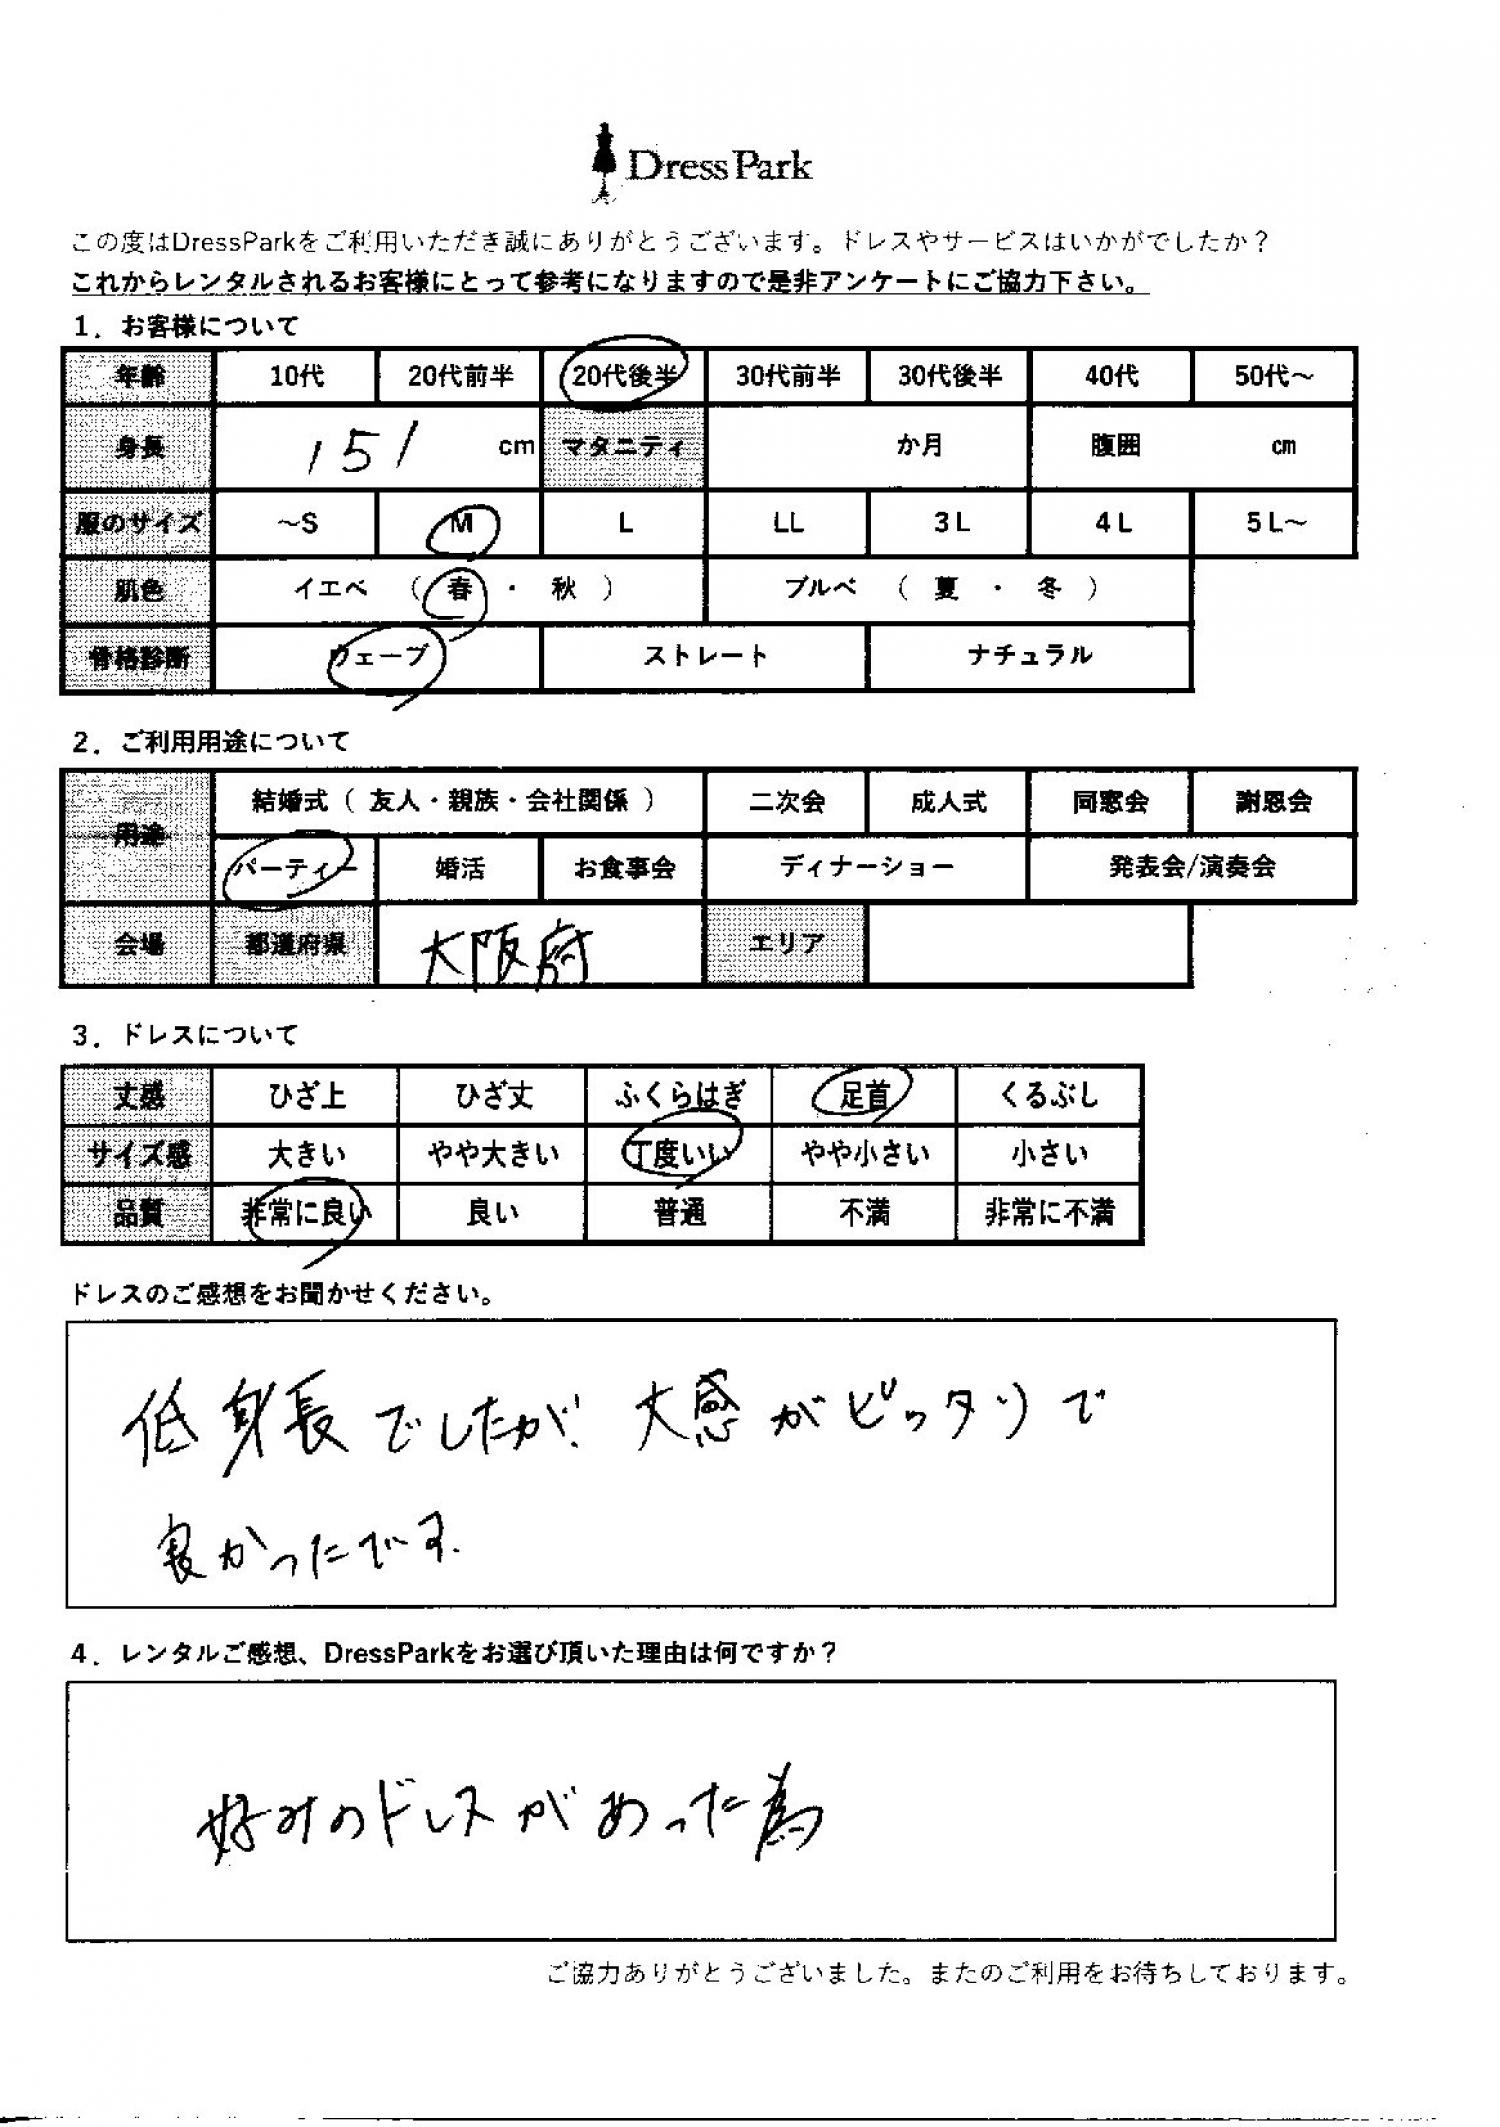 DressPark
この度はDressParkをご利用いただき誠にありがとうございます。ドレスやサービスはいかがでしたか？
これからレンタルされるお客様にとって参考になりますので是非アンケートにご協力下さい。
1．お客様について
年齢 10代 20代前半 20代後半 30代前半 30代後半 40代 50代～
身長 151 cm マタニティ か月 腹囲 cm
服のサイズ ～S M L LL 3L 4L 5L～
肌色 イエベ （ 春 ・ 秋 ） ブルベ （ 夏 ・ 冬 ）
骨格診断 ウェーブ ストレート ナチュラル
2．ご利用用途について
用途 結婚式（ 友人・親族・会社関係 ） 二次会 成人式 同窓会 謝恩会
パーティー 婚活 お食事会 ディナーショー 発表会/演奏会
会場 都道府県 大阪府 エリア
3．ドレスについて
丈感 ひざ上 ひざ丈 ふくらはぎ 足首 くるぶし
サイズ感 大きい やや大きい 丁度いい やや小さい 小さい
品質 非常に良い 良い 普通 不満 非常に不満
ドレスのご感想をお聞かせください。
低身長でしたが、丈感がピッタリで
良かったです.
4．レンタルご感想、DressParkをお選び頂いた理由は何ですか？
好みのドレスがあった為
ご協力ありがとうございました。またのご利用をお待ちしております。